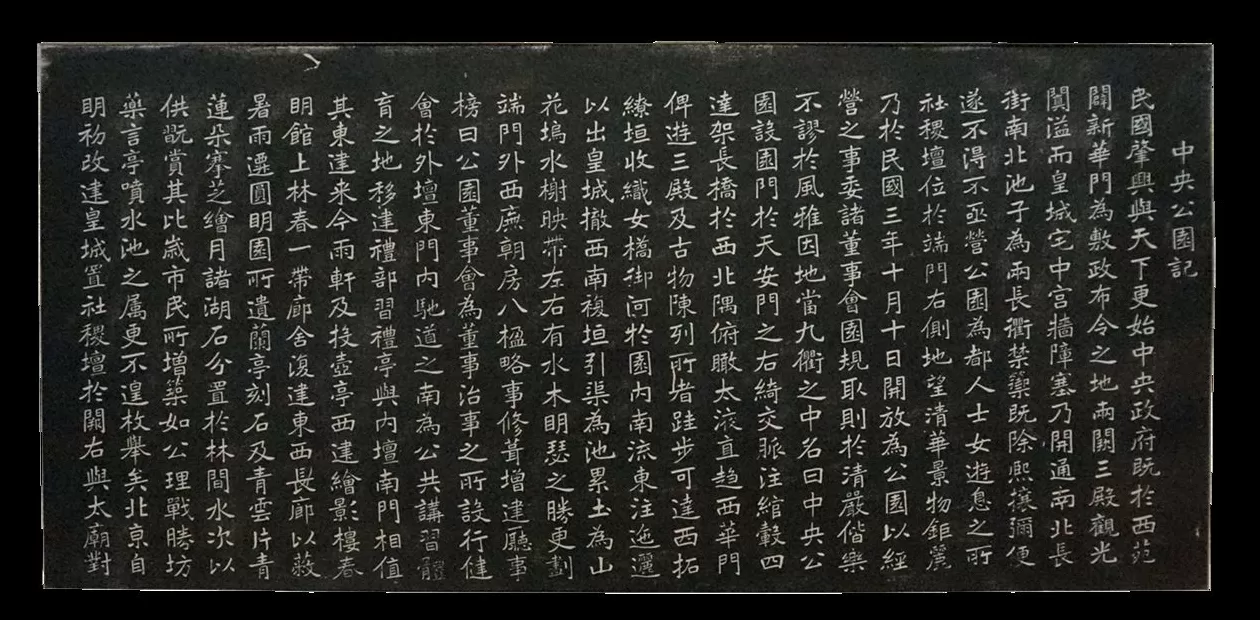 中央公園記
民國肇興與天下更始中央政府既於西苑
闢新華門為敷政布令之地兩闕三殿觀光
闐溢而皇城宅中宮牆障塞乃開通南北長
街南北池子為兩長衢禁籞既除熙攘彌便
遂不得不亟營公園為都人士女遊息之所
社稷壇位於端門右側地望清華景物鉅麗
乃於民國三年十月十日開放為公園以經
營之事委諸董事會園規取則於清嚴偕樂
不謬於風雅因地當九衢之中名曰中央公
園設園門於天安門之右綺交脈注綰轂四
達架長橋於西北隅俯瞰太液直趨西華門
俾遊三殿及古物陳列所者跬步可達西拓
繚垣收織女橋御河於園內南流東注迤邐
以出皇城撤西南複垣引渠為池累土為山
花塢水榭映帶左右有水木明瑟之勝更劃
端門外西廡朝房八楹略事修葺增建廳事
榜曰公園董事會為董事治事之所設行健
會於外壇東門內馳道之南為公共講習體
育之地移建禮部習禮亭與內壇南門相值
其東建来今雨軒及投壺亭西建繪影樓春
明館上林春一帶廊舍復建東西長廊以蔽
暑雨遷圓明園所遺蘭亭刻石及青雲片青
蓮朵搴芝繪月諸湖石分置於林間水次以
供翫賞其比歲市民所增築如公理戰勝坊
藥言亭噴水池之属更不遑枚舉矣北京自
明初改建皇城置社稷壇於闕右與太廟對